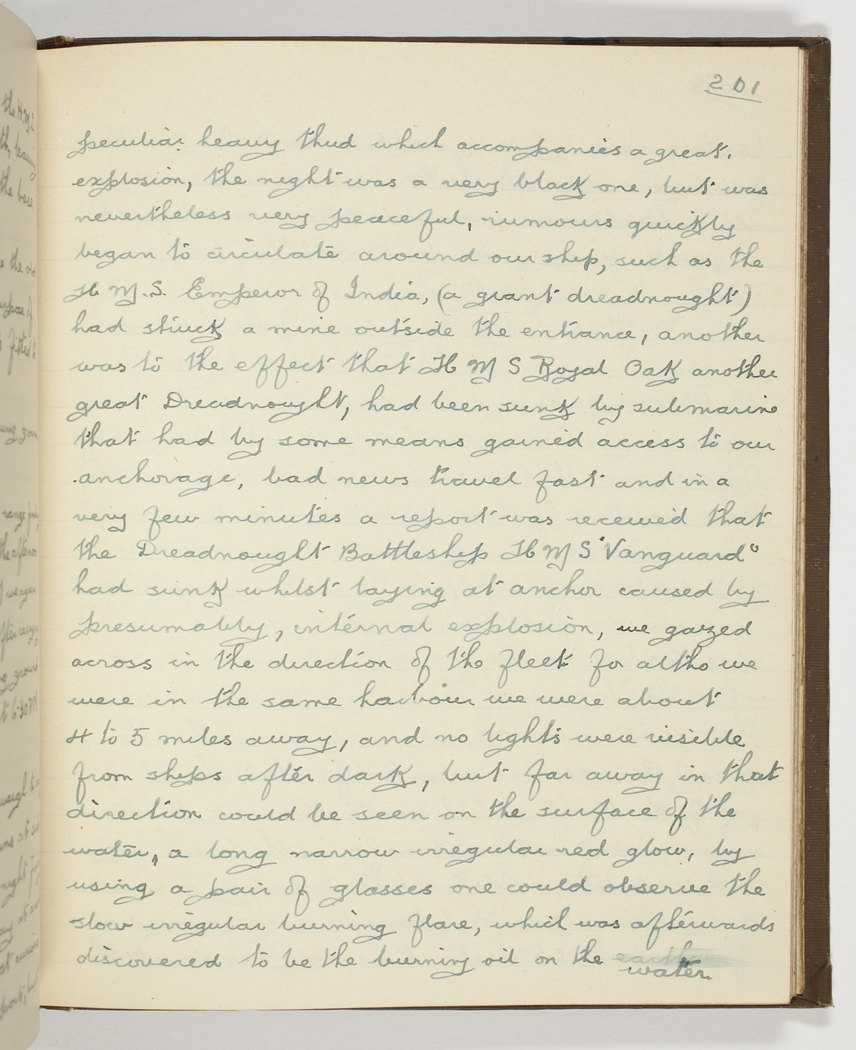 201
peculiar heavy thud which accompanies a great.
explosion, the night was a very black one, but was
nevertheless very peaceful, rumours quickly
began to circulate around our ship, such as the
H.M.S. Emperor of India, (a giant dreadnought)
had struck a mine outside the entrance, another
was to the effect that H M S Royal Oak another
great Dreadnought, had been sunk by submarine
that had by some means gained access to our
anchorage, bad news travel fast and in a
very few minutes a report was received that
the Dreadnought Battleship H M S "Vanguard"
had sunk whilst laying at anchor caused by
presumably, internal explosion, we gazed
across in the direction of the fleet for altho we
were in the same harbour we were about
4 to 5 miles away, and no lights were visible
from ships after dark, but far away in that
direction could be seen on the surface of the
water, a long narrow irregular red glow, by
using a pair of glasses one could observe the
slow irregular burning flare, which was afterwards
discovered to be the burning oil on the earth
water.